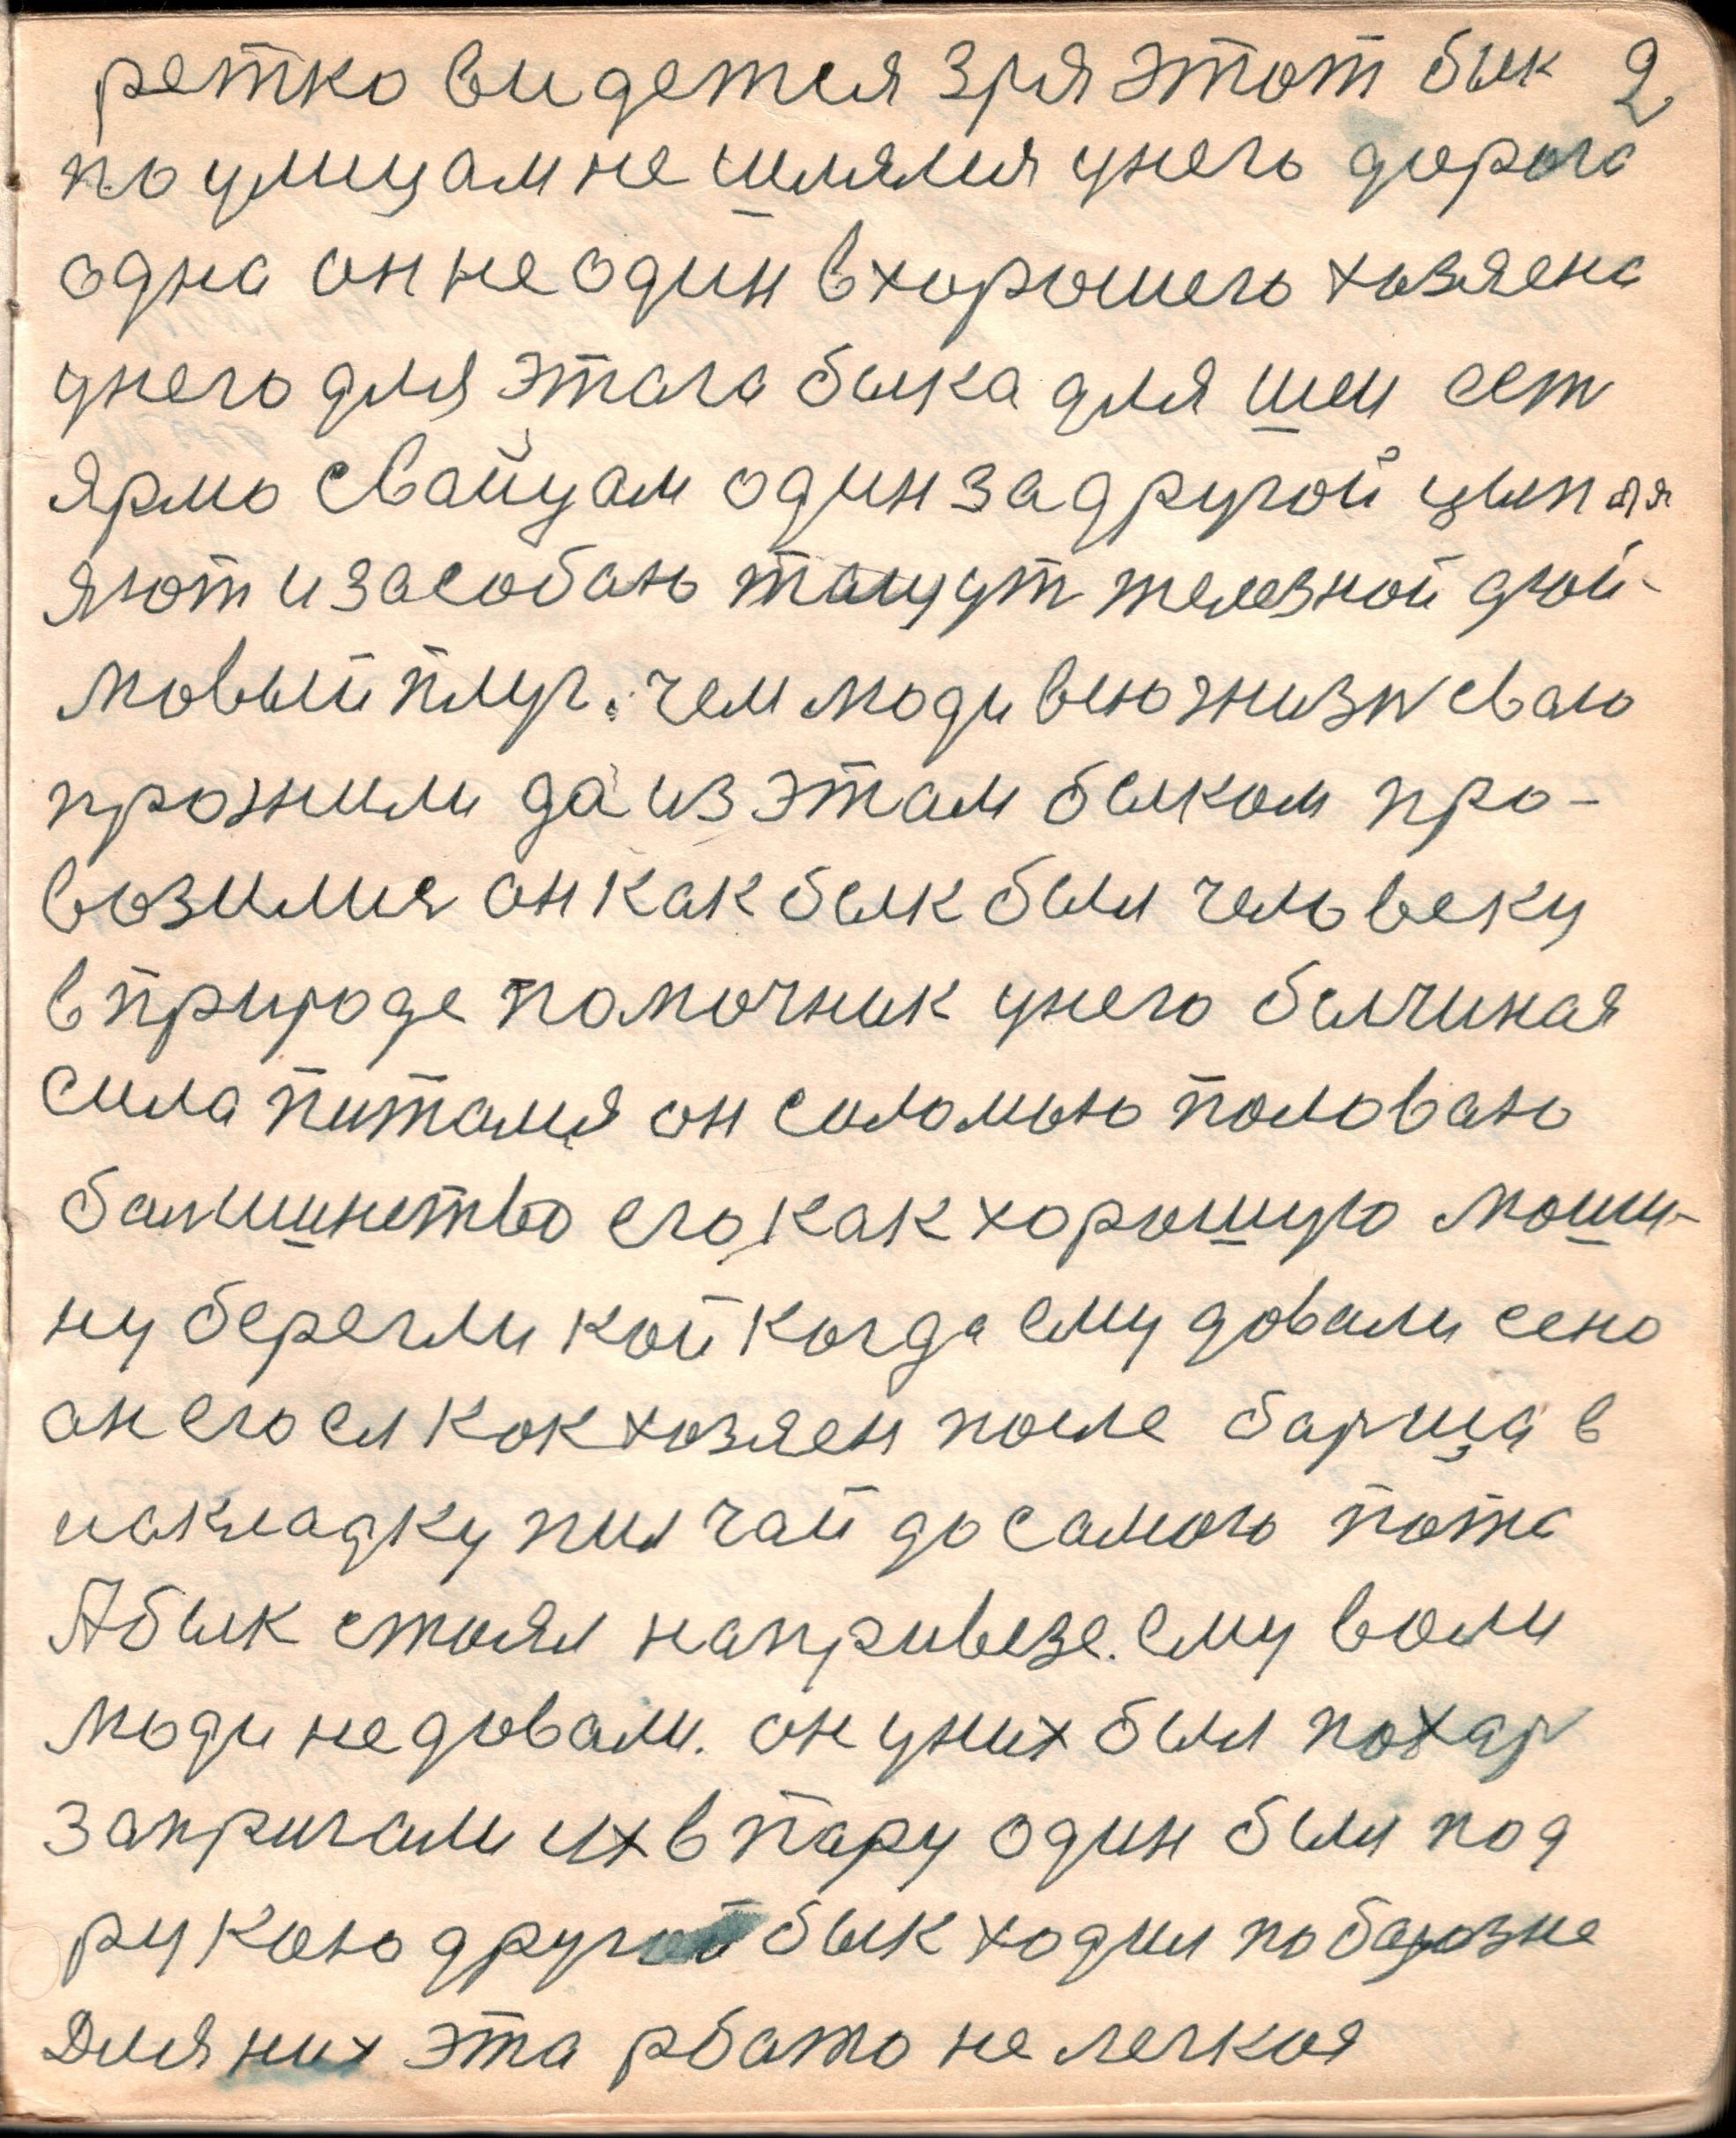 ретко видется зря этот бык 2
по улицам не шлялся унего дорога
одна он не один в хорошего хозяена
унего для этага быка для шеи ест
ярмо свайцам один за другой цып ля
яют и засобаю тащут железной дюй-
мовый плуг. чем люди всю жизн сваю
прожили да из этам быком про-
возился он как бык был человеку
в природе помочник унего бычиная
сила питался он соломою половаю
балшинство его как хорошую моши-
ну берегли кой когда ему довали сено
он его ел кок хозяен после барща в
накладку пил чай до самого пота
А бык стоял на привезе. ему воли
люди не довали. он у них был похар
запригали их в пару один был под
рукою другой бык ходил по базозне
Для них эта рбато не легкоя